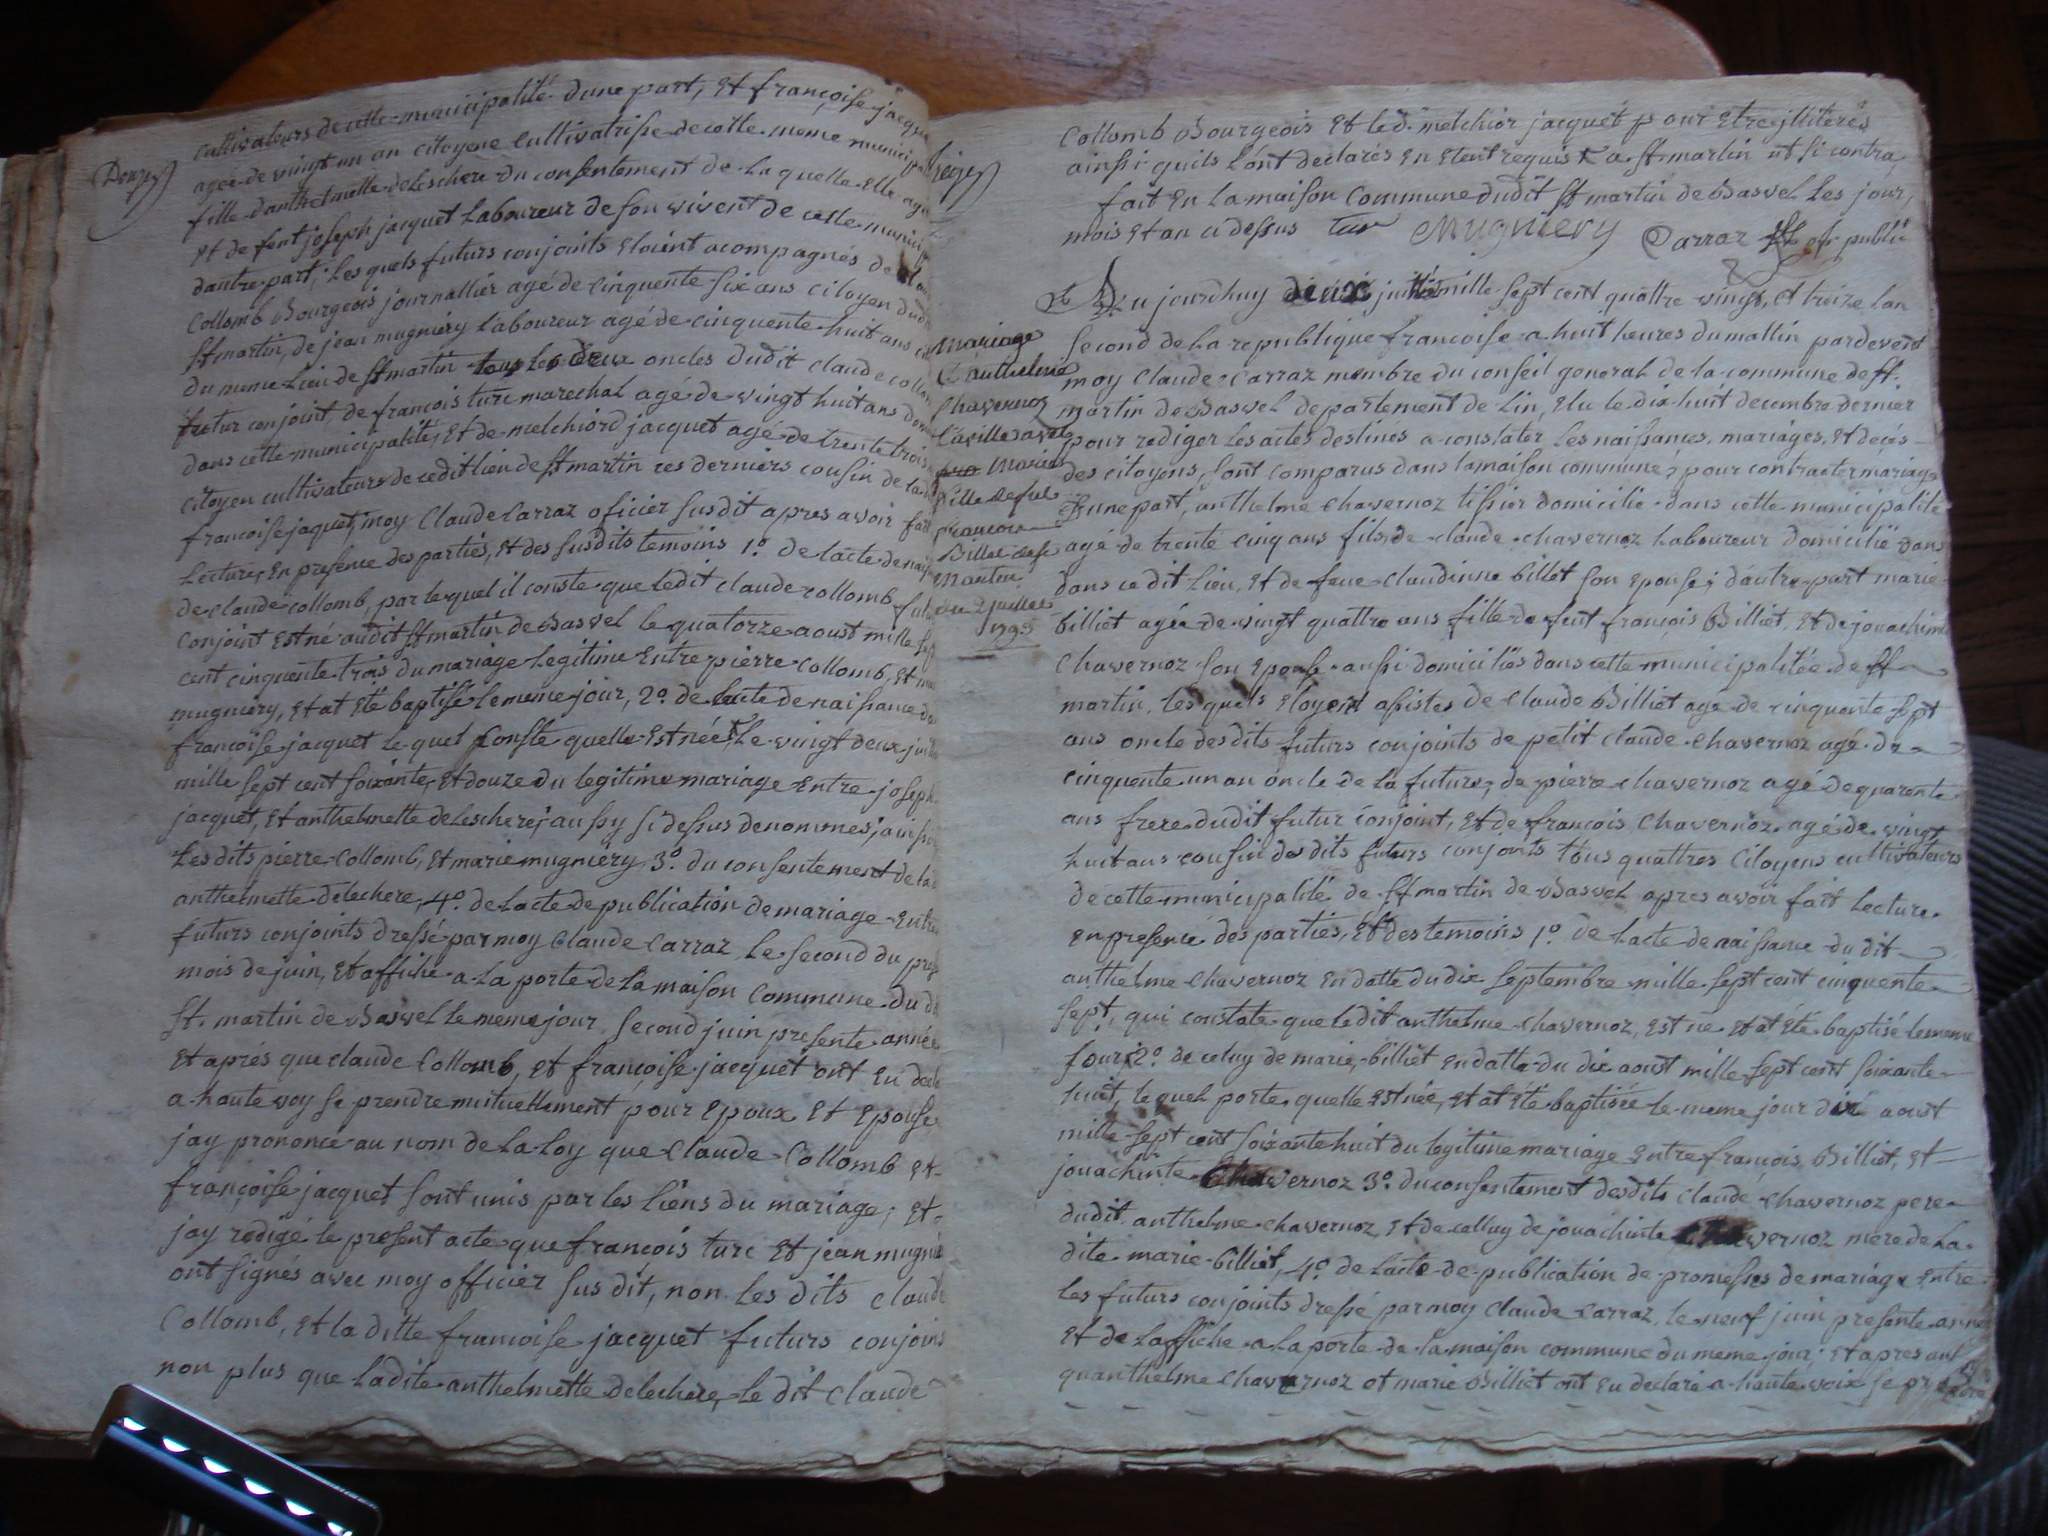 Douze
cultivateurs de cette municipalité dune part, et françoise jacque
agée de vingt un an citoyene cultivatrisse de cette meme municip
fille danthelmette delechere du consentement de la quelle elle agit
et de feut joseph jacquet laboureur de son vivent de cette munici
dautre part, les quels futurs conjoints etoint acompagnés de
Collomb Bourgeois journallier agé de cinquente six ans citoyen dud
st martin, de jean mugniéry laboureur agé de cinquente huit ans
du meme lieu de st martin tous les deux oncles dudit claude collom
futur conjoint, de francois turc marechal agé de vingt huit ans dom
dans cette municipalité, et de melchiord jacquet agé de trente trois
citoyen cultivateurs de cedit lieu de st martin ces derniers cousin de lad
francoise jaquet, moy Claude Carraz oficier susdit apres avoir fait
lecture, en presence des parties, et des susdits temoins 1.º de lacte de nais
de claude collomb, par lequel il conste que ledit claude collomb futu
conjoint est né audit st martin de Bavel le quatorze aoust mille sep
cent cinquente trois du mariage legitime entre pierre collomb, et ma
mugniery, et at eté baptisé le meme jour, 2.º de lacte de naissance de
françoise jacquet le quel conste quelle est née le vingt deux jui
mille sept cent soixante, et douze du legitime mariage entre joseph
jacquet, et anthelmette delechere, aussy si dessus denommes, ainsi
les dits pierre Collomb, et marie mugniéry 3.º du consentement de lad
anthelmette delechere, 4.º de lacte de publication de mariage entre
futurs conjoints dressé par moy Claude Carraz le second du pres
mois de juin, et affiché a la porte de la maison commune du dt
st. martin de Bavel le meme jour second juin presente année
et aprés que claude Collomb, et françoise jacquet ont eu decla
a haute voy se prendre mutuellement pour epoux et epouse
jay prononcé au nom de la loy que Claude Collomb et
françoise jacquet sont unis par les liens du mariage; et
jay redigé le present acte que françois turc et jean mugnié
ont signés avec moy officier sus dit, non les dits claude
Collomb, et la ditte francoise jacquet futurs conjoins
non plus que ladite anthelmette delechere, le dit claude
treize
Collomb Bourgeois et led. melchior jacquet pour etre illiterés
ainsi quils lónt declarés en etent requis a st martin ut si contra,
fait en la maison Commune dudit st martin de Bavel les jour,
mois et an ci dessus turc Mugniery Carraz off publi
Mariage
danthelme
Chavernoz
avec
Marie
fille de feu
françois
Billiet de st
Martin
du 2 juillet
1793
Du jourdhuy deux juillet mille sept cent quattre vingt, et treize lan
second de la republique francoise a huit heures du mattin pardevent
moy Claude Carraz membre du conseil general de la commune de st.
martin de Bavel departement de Lin, elu le dix huit decembre dernier
pour rediger les actes destinés a constater les naissances, mariages, et decés
des citoyens, sont comparus dans lamaison commune, pour contracter mariage
dune part, anthelme chavernoz tissier domicilié dans cette municipalité
agé de trente cinq ans fils de claude chavernoz laboureur domicilié dans
dans ce dit lieu, et de feue claudinne billet son epouse, dáutre part marie
billiet agée de vingt quattre ans fille de feut françois Billiet, et de jouachime
Chavernoz son epouse aussi domiciliés dans cette municipalitée de st
martin, les quels etoyent assistes de Claude Billiet agé de cinquente sept
ans oncle desdits futurs conjoints de petit claude chavernoz agé de
cinquente un an oncle de la future, de pierre chavernoz agé de quarente
ans frere dudit futur conjoint, et de francois chavernoz agé de vingt
huit ans cousin des dits futurs conjonts tous quattres Citoyens cultivateurs
de cette municipalité de st martin de Bavel apres avoir fait lecture
en presence des parties, et des temoins 1.º de lacte de naissance du dit
anthelme chavernoz en datte du dix septembre mille sept cent cinquente
sept, qui constate que ledit anthelme chavernoz, est né et at été baptisé le meme
jour, 2.º de celuy de marie billiet en datte du dix aoust mille sept cent soixante
huit, le quel porte quelle est née, et at été baptisée le meme jour dix aoust
mille sept cent soixante huit du legitime mariage entre françois Billiet, et
jouachinte Chavernoz 3.º du consentement desdits claude chavernoz pere
dudit anthelme chavernoz, et de celluy de jouachinte chavernoz mere de la
dite marie billiet, 4.º de lacte de publication de promesses de mariage entre
les futurs conjoints dressé par moy Claude Carraz le neuf juin presente anneé
et de laffiche a la porte de la maison commune du meme jour; et apres
quanthelme chavernoz et marie Billiet ont eu declaré a haute voix se prendre